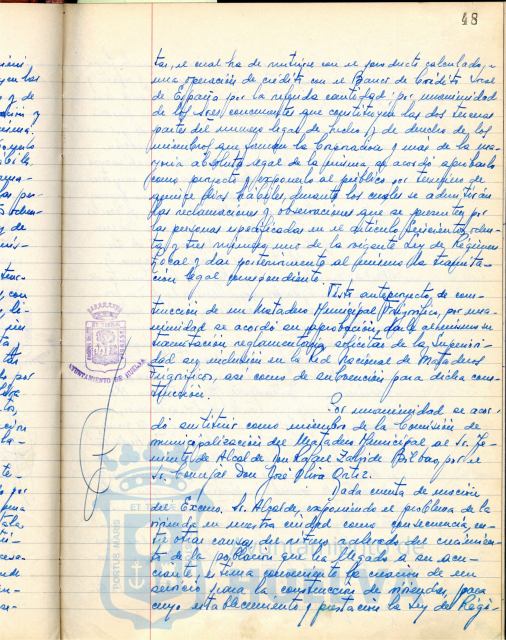 48
tos, el cual ha de nutrirse con el producto calculado,
una operación de crédito con el Banco de Crédito Local
de España por la referida cantidad; por unanimidad
de los Sres. concurrentes que constituyen las dos terceras
partes del número legal de hecho y de derecho de los
miembros que forman la Corporación y más de la ma-
yoría absoluta legal de la misma, se acordó aprobarlo
como proyecto y exponerlo al público por término de
quince días hábiles, durante los cuales se admitirán
las reclamaciones y observaciones que se presenten por
las personas especificadas en el artículo seiscientos ochen-
ta y tres número uno de la vigente Ley de Régimen
Local y dar posteriormente al mismo la tramita-
ción legal correspondiente.
Visto anteproyecto, de cons-
trucción de un Matadero Municipal Frigorífico, por una-
nimidad se acordó su aprobación, darle al mismo su
tramitación reglamentaria, solicitar de la Superiori-
dad su inclusión en la Red Nacional de Mataderos
Frigoríficos, así como de subvención para dicha cons-
trucción.
Por unanimidad se acor-
dó sustituir como miembro de la Comisión de
municipalización del Matadero Municipal al Sr. Te-
niente de Alcalde Don Rafael Bilbao, por el
Sr. Concejal Don José Oliva Ortiz.
Dada cuenta de moción
del Excmo. Sr. Alcalde, exponiendo el problema de la
vivienda en nuestra ciudad como consecuencia, en-
tre otras causas, del ritmo acelerado del crecimien-
to de la población que ha llegado a ser acu-
ciante, estima conveniente la creación de un
servicio para la construcción de viviendas, para
cuyo establecimiento y prestación la Ley del Régi-
AYUNTAMIENTO DE HUELVA
PORTUS MARIS